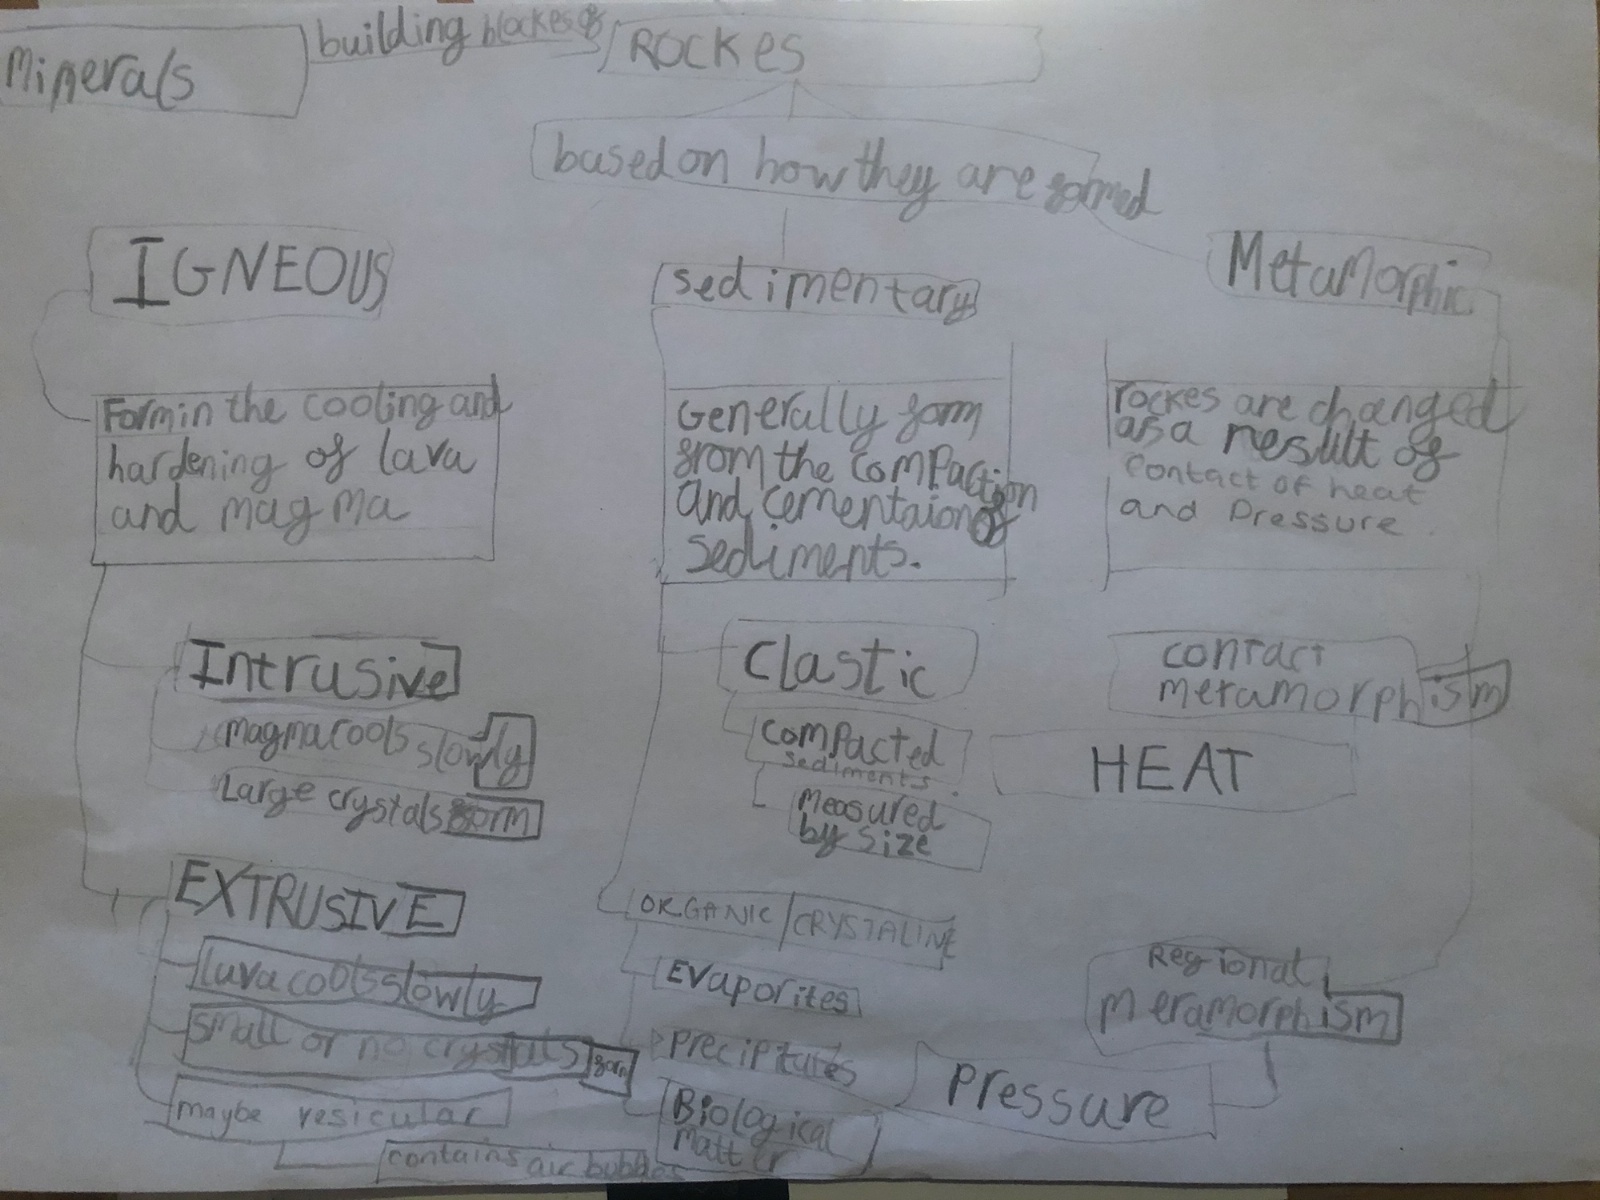 Minerals
building blockes of
ROCKES
based on how they are formed
IGNEOUS
sedimentary
Metamorphic
Formin the cooling and
hardening of lava
and magma
Generally form
from the compaction
and cementaion of
sediments.
rockes are changed
as a result of
contact of heat
and pressure.
Intrusive
magma cools slowly
Large crystals form
EXTRUSIVE
Lava cools slowly
small or no crystals form
maybe vesicular
contains air bubbles
Clastic
compacted
sediments.
Measured
by size
ORGANIC/CRYSTALINE
Evaporites
preciptates
Biological
matter
contact
metamorphism
HEAT
Regional
meramorphism
Pressure